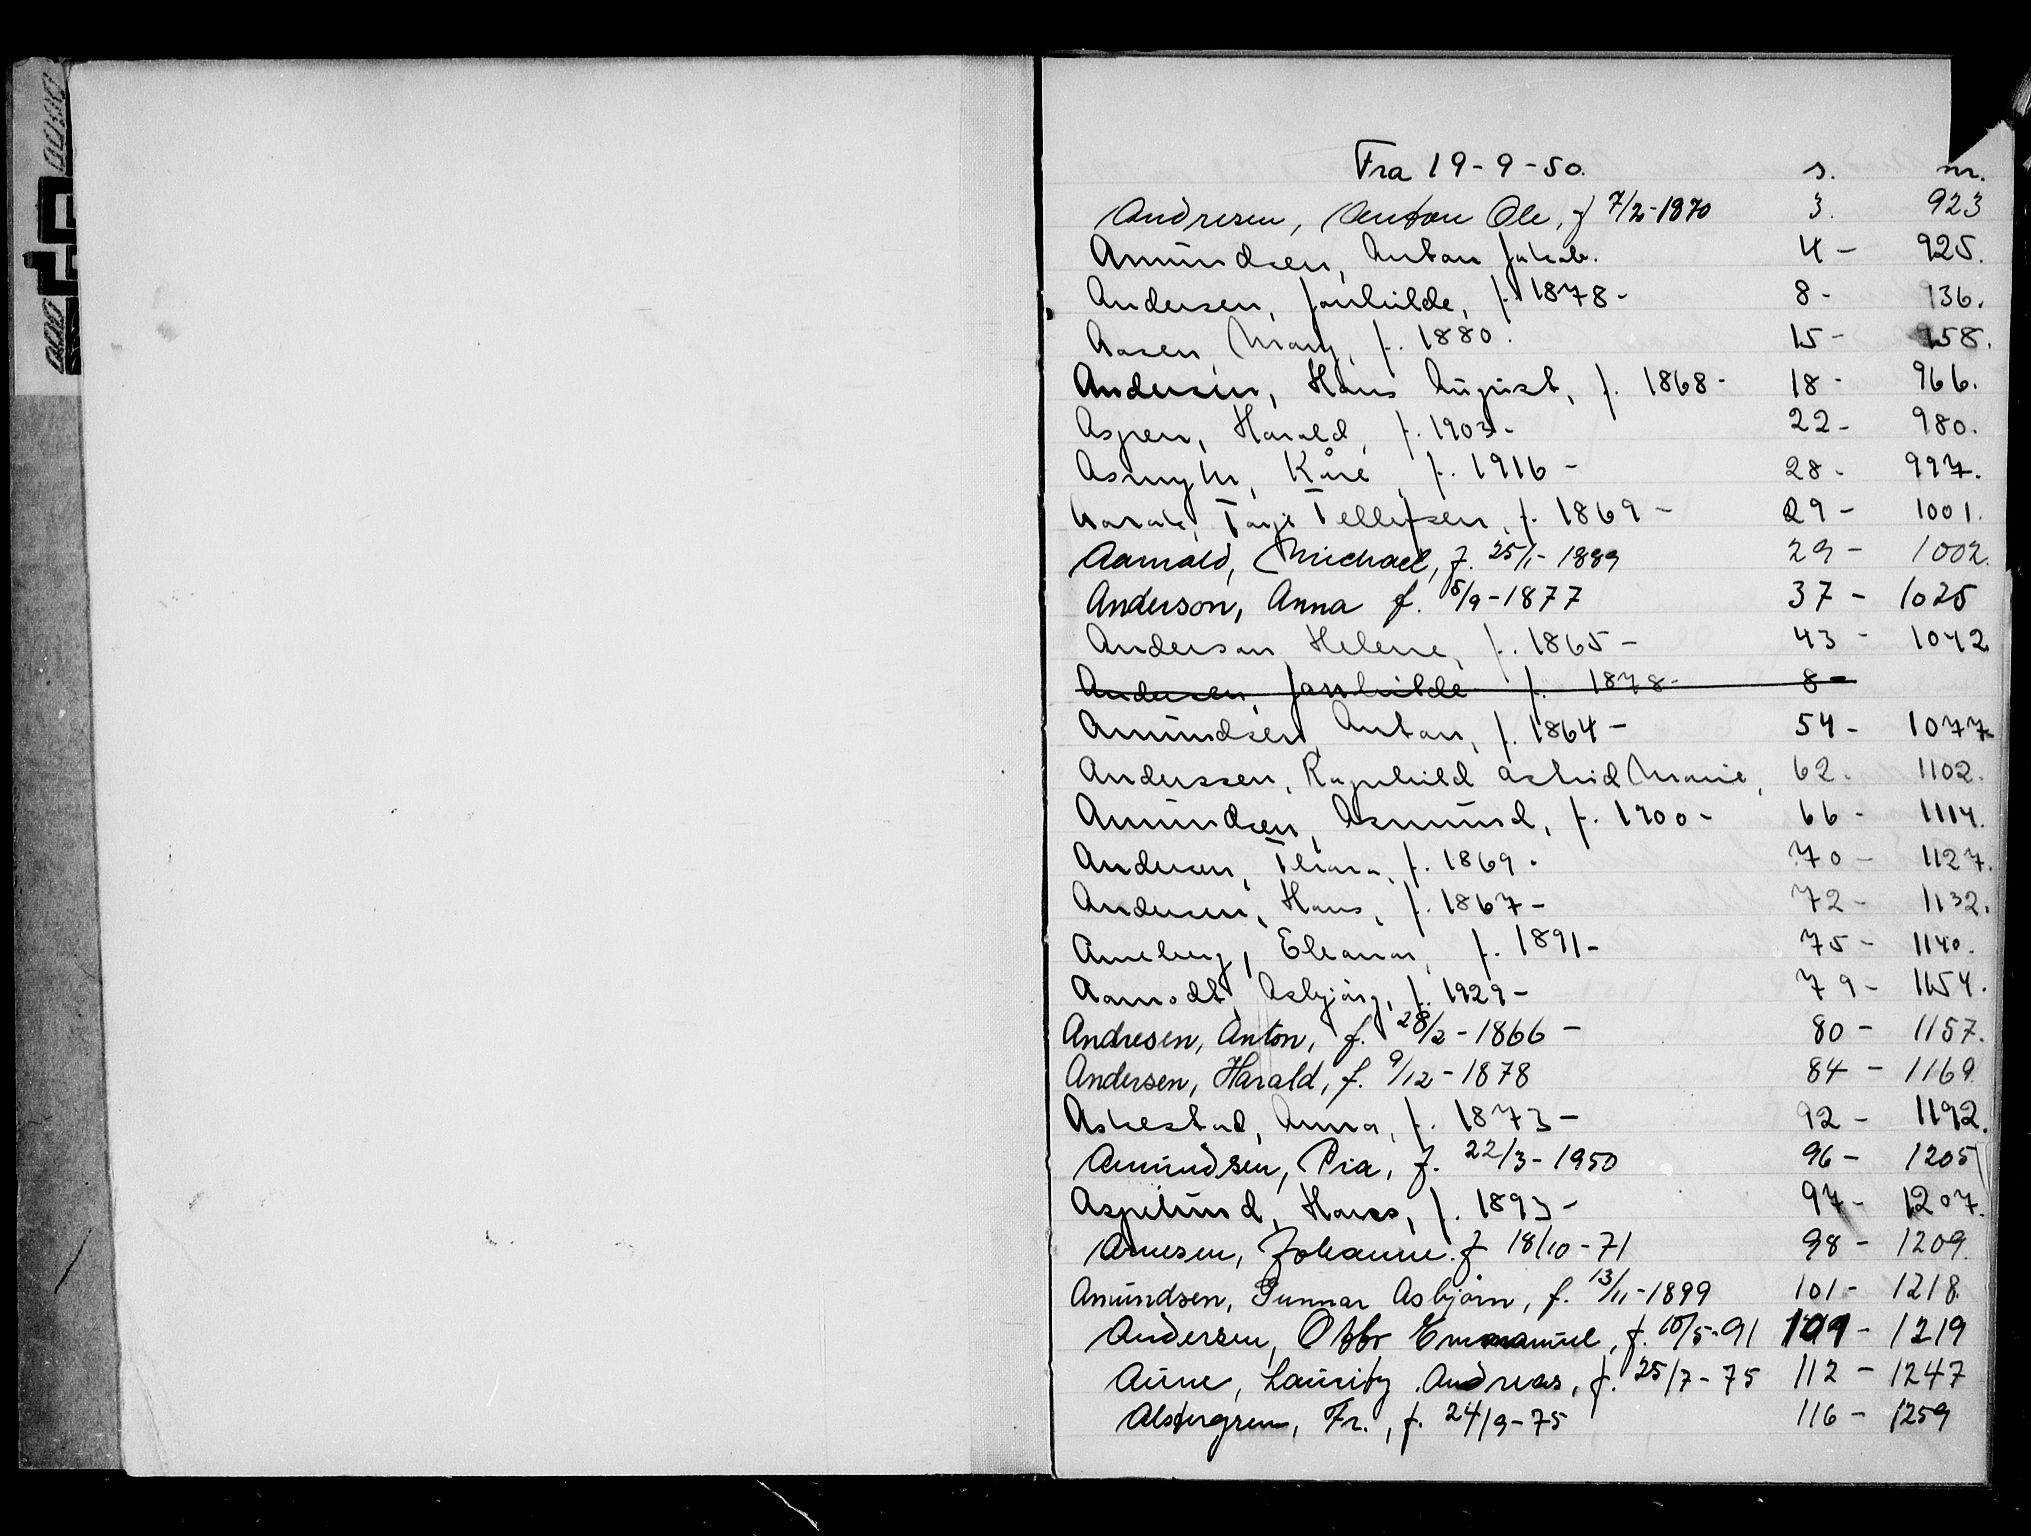 Fra 19-9-50. s. nr.
Andresen, Anton Ole, f 7/2-1870 3. 923
Amundsen, Anton Jakob. 4 - 925.
Andersen, Janhilde, f. 1878 - 8 - 936.
Aasen, Mary, f. 1880. 15 - 958.
Andersen, Hans August, f. 1868 - 18 - 966.
Aspen, Harald, f. 1903 - 22 - 980.
Asmyhr, Kåre, f. 1916 - 28 - 997.
Tarje Tellefsen, f. 1869 - 29 - 1001.
Michael, f. 25/1-1889 29 - 1002.
Anderson, Anna f. 5/9-1877 37 - 1025
Anderson, Helene, f. 1865 - 43 - 1042
Andersen, Janhilde f. 1878 - 8 -
Amundsen, Anton, f. 1864 - 54 - 1077
Anderssen, Ragnhild Astrid Marie, 62. 1102.
Amundsen, Asmund, f. 1900 - 66 - 1114.
Andersen, Thora, f. 1869. 70 - 1127.
Andersen, Hans, f. 1867 - 72 - 1132.
Arneberg, Eleanor, f. 1891 - 75 - 1140.
Aamodt, Asbjørg, f. 1929 - 79 - 1154.
Andresen, Anton, f. 28/2-1866 - 80 - 1157.
Andersen, Harald, f. 9/12-1878 84 - 1169
Askestad, Anna, f. 1873 - 92 - 1192.
Amundsen, Pia, f. 22/3-1950 96 - 1205
Aspelund, Hans, f. 1893 - 97 - 1207.
Arnesen, Johanne f 18/10-71 98 - 1209.
Amundsen, Gunnar Asbjørn, f. 13/11-1899 101 - 1218.
Andersen, Otto Emmanuel, f. 10/5-91 109 - 1219
Aune, Lauritz Andreas, f. 25/7-75 112 - 1247
Alstergren, Fr., f. 24/9-75 116 - 1259